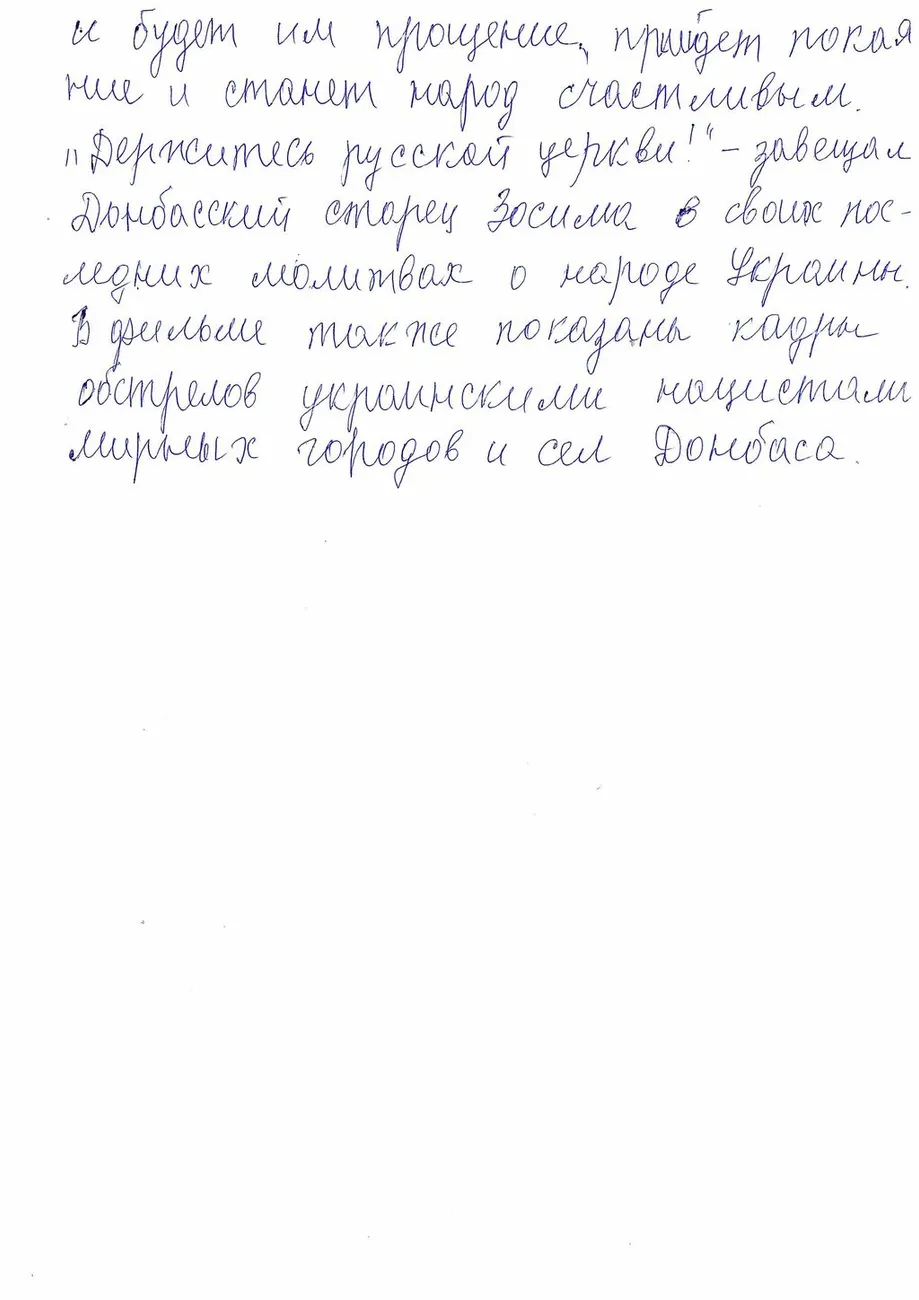 и будет им прощение, прийдет покая
ние и станет народ счастливым.
"Держитесь русской церкви!" - завещал
Донбасский старец Зосима в своих пос-
ледних молитвах о народе Украины.
В фильме также показаны кадры
обстрелов украинскими нацистами
мирных городов и сел Донбаса.